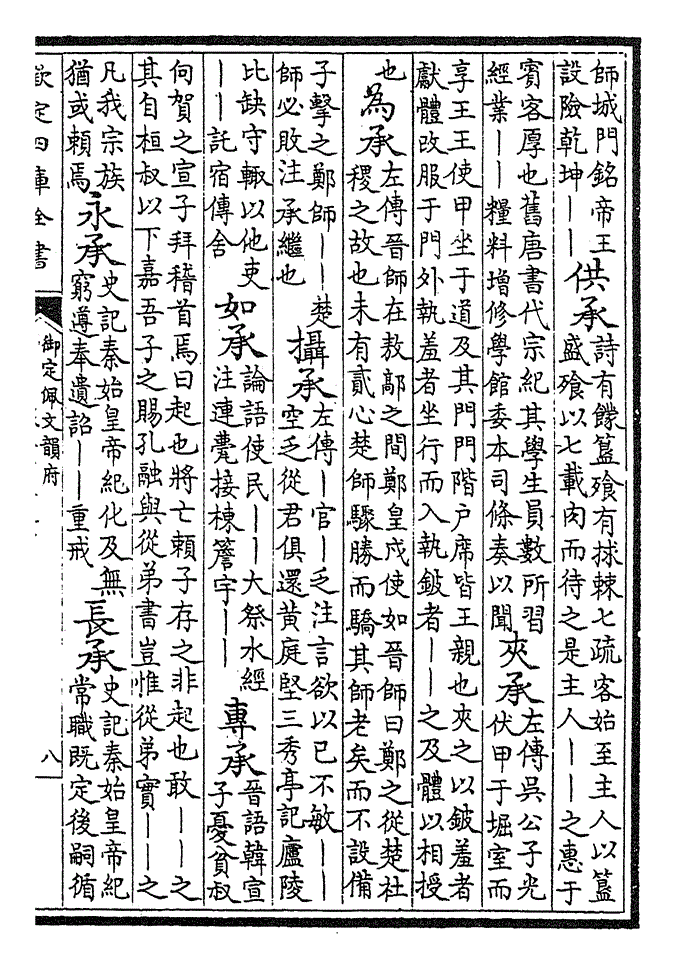 師城門銘帝王
設險乾坤——
供承
詩有饛簋飱有捄棘七疏客始至主人以簋
盛飱以七載肉而待之是主人——之惠于
賓客厚也舊唐書代宗紀其學生員數所習
經業——糧料增修學館委本司條奏以聞
夾承
左傳吳公子光
伏甲于堀室而
享王王使甲坐于道及其門門階户席皆王親也夾之以鈹羞者
獻體改服于門外執羞者坐行而入執鈹者——之及體以相授
也
為承
左傳晉師在敖鄗之間鄭皇戍使如晉師曰鄭之從楚社
稷之故也未有貳心楚師驟勝而驕其師老矣而不設備
子擊之鄭師——楚
師必敗注承繼也
攝承
左傳—官—乏注言欲以己不敏——
空乏從君俱還黄庭堅三秀亭記廬陵
比缺守輒以他吏
——託宿傳舍
如承
論語使民——大祭水經
注連甍接棟簷宇——
專承
晉語韓宣
子憂貧叔
向賀之宣子拜稽首焉曰起也將亡賴子存之非起也敢——之
其自桓叔以下嘉吾子之賜孔融與從弟書豈惟從弟實——之
凡我宗族
猶或賴焉
永承
史記秦始皇帝紀化及無
窮遵奉遺詔——重戒
長承
史記秦始皇帝紀
常職既定後嗣循
欽定四庫全書
御定佩文韻府
八